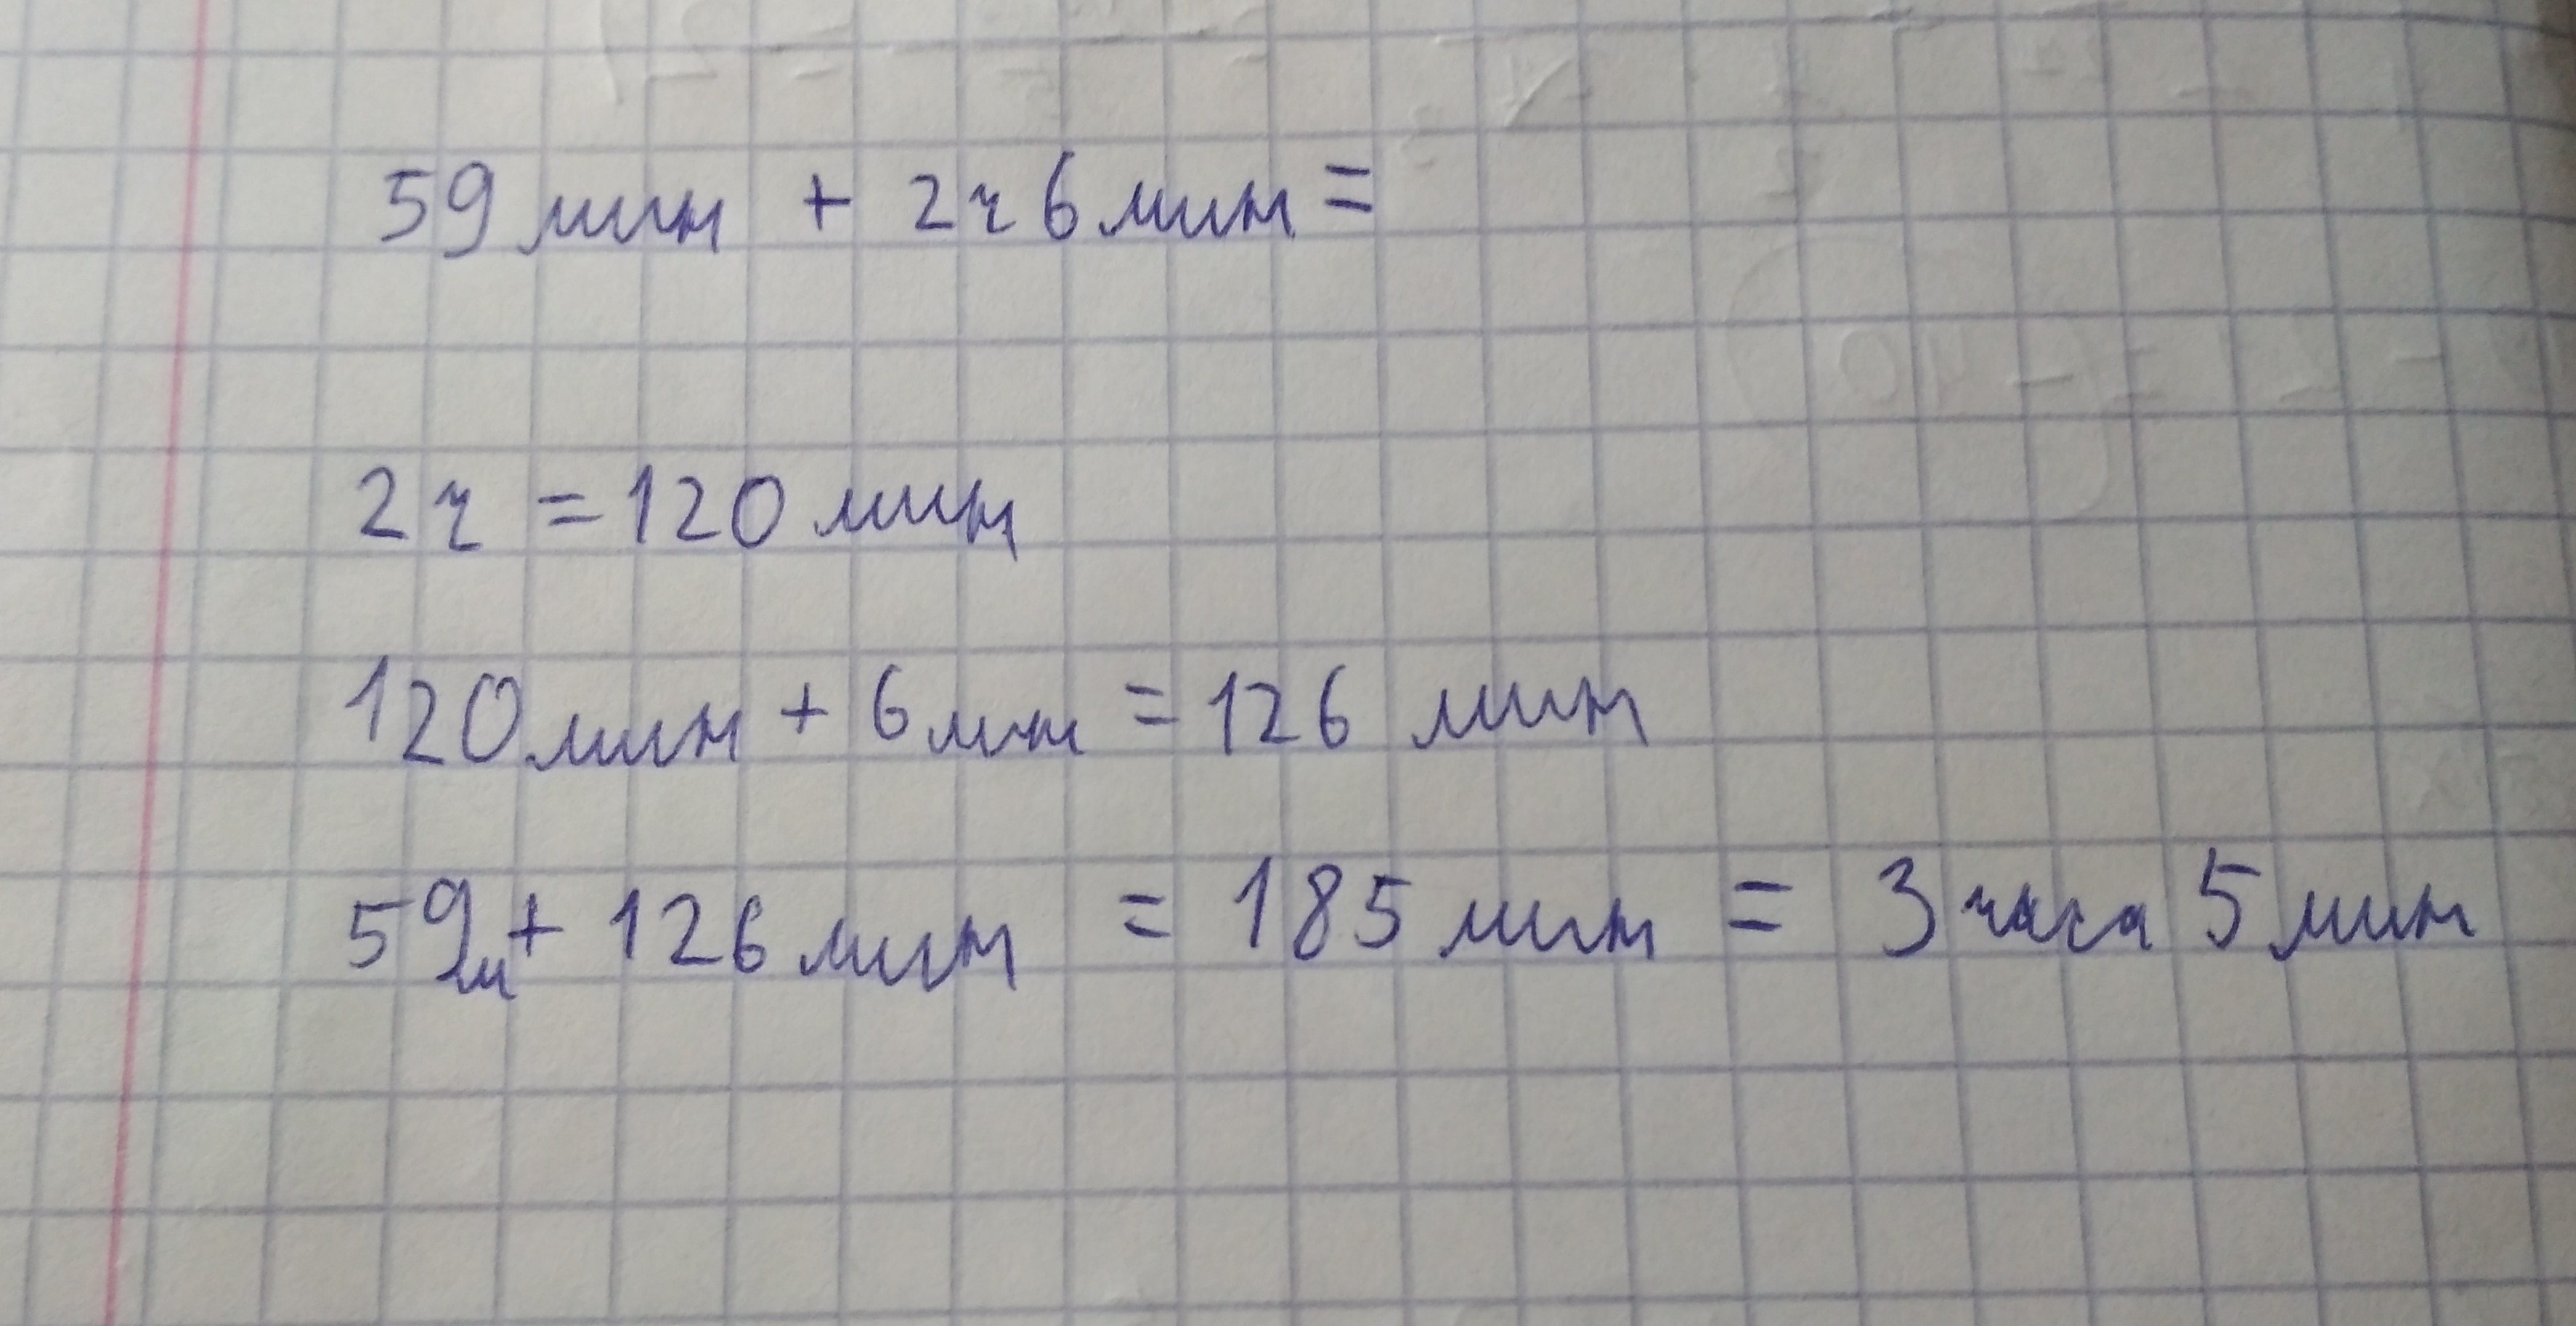 59 мин + 2ч 6 мин =
2 ч = 120 мин
120 мин + 6 мин = 126 мин
59 м + 126 мин = 185 мин = 3 часа 5 мин